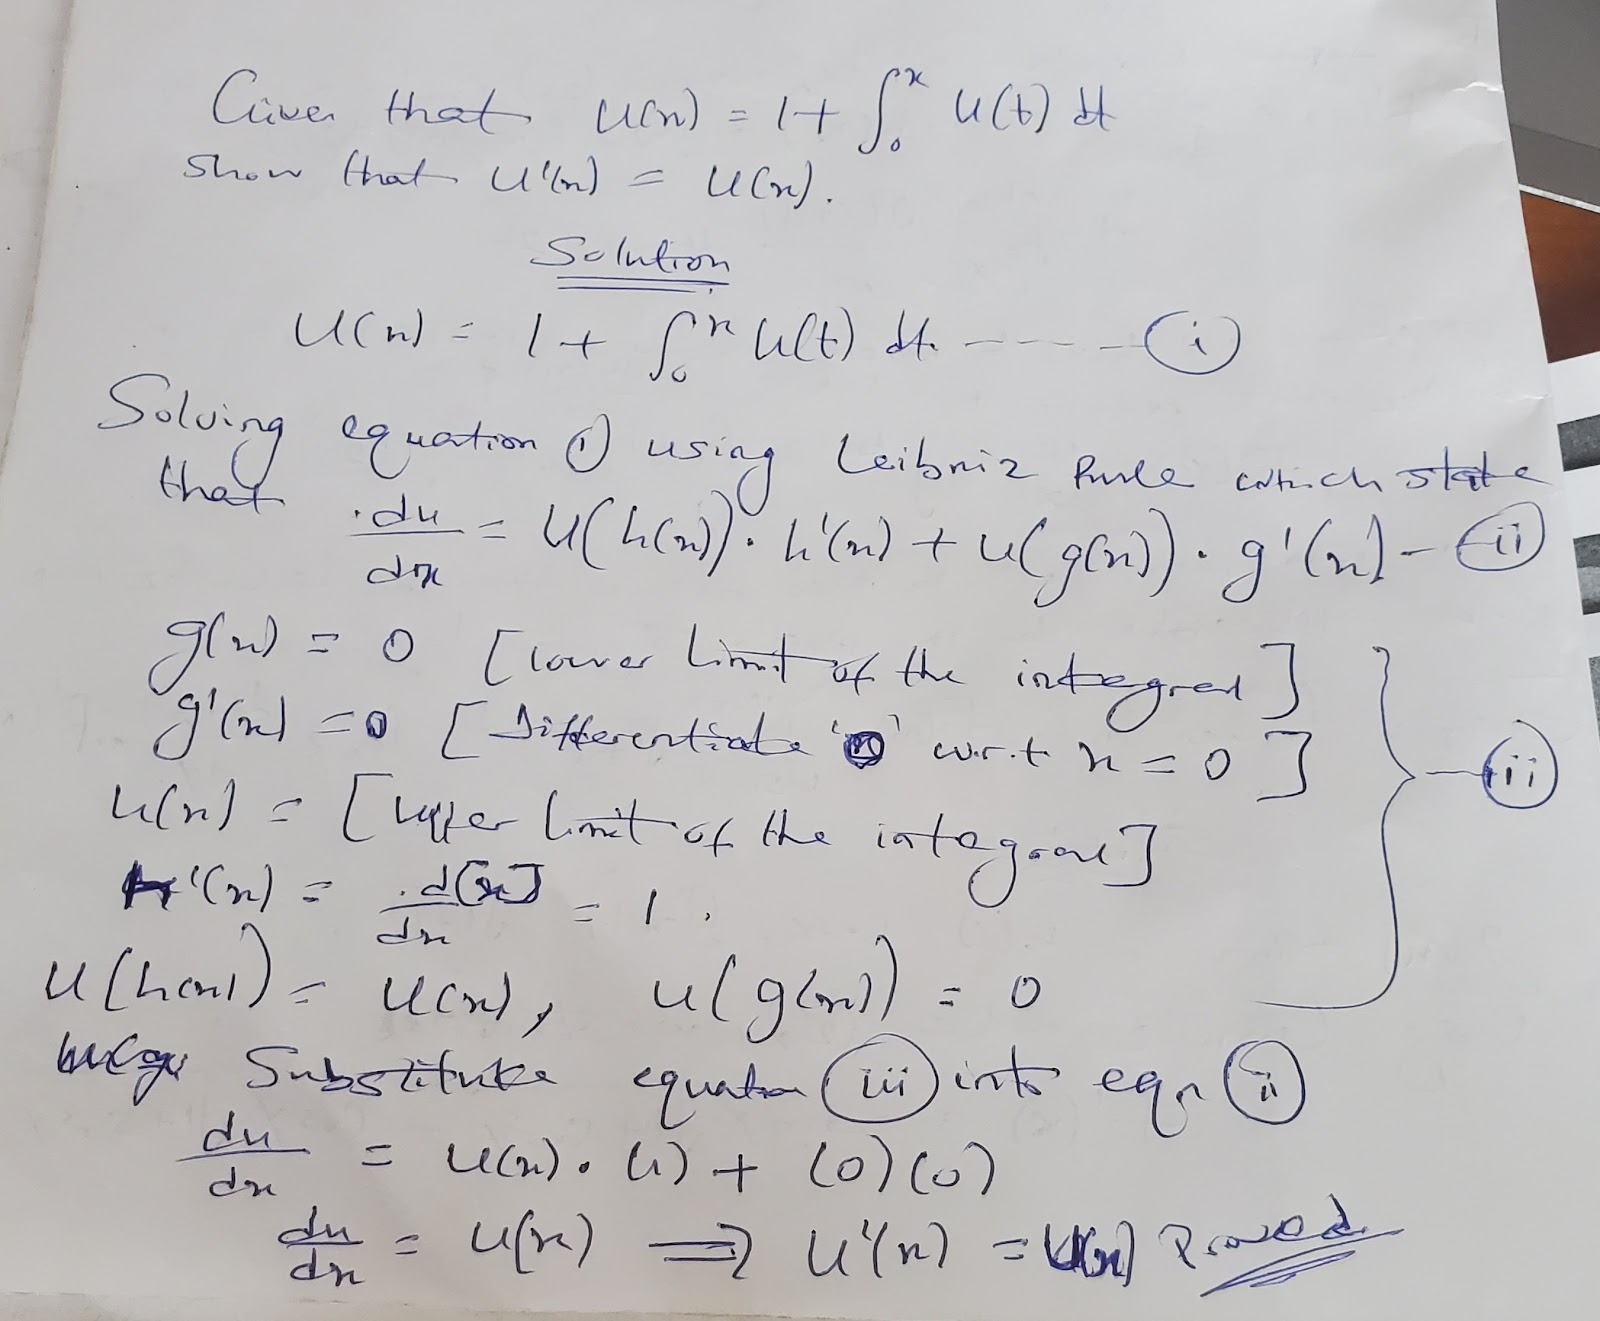 Given that u(x) = 1 + ∫₀ˣ u(t) dt
show that u'(x) = u(x).
Solution
u(x) = 1 + ∫₀ˣ u(t) dt. ----- (i)
Solving equation (i) using Leibniz Rule which state
that du/dx = u(h(x)) · h'(x) + u(g(x)) · g'(x) - (ii)
g(x) = 0 [lower limit of the integral]
g'(x) = 0 [Differentiate w.r.t x = 0]
u(x) = [upper limit of the integral]
h'(x) = d[x]/dx = 1.
(iii)
u(h(x)) = u(x), u(g(x)) = 0
Substitute equation (iii) into eqn (ii)
du/dx = u(x) · (1) + (0)(0)
du/dx = u(x) ⟹ u'(x) = u(x) Proved